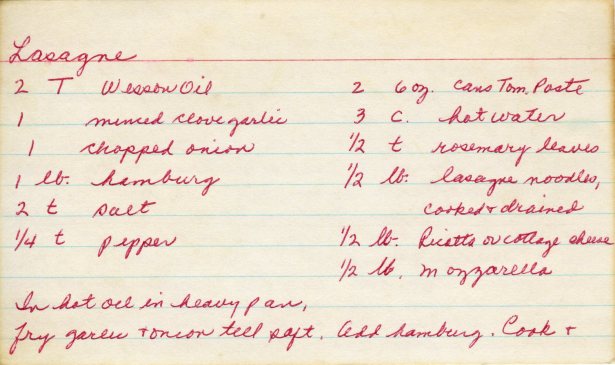 Lasagne
2 T Wesson Oil
1 minced clove garlic
1 chopped onion
1 lb. hamburg
2 t salt
1/4 t pepper
2 6 oz. cans Tom. Paste
3 C. hot water
1/2 t rosemary leaves
1/2 lb. lasagne noodles,
cooked + drained
1/2 lb. Ricotta or cottage cheese
1/2 lb. mozzarella
In hot oil in heavy pan,
fry garlic + onion till soft. Add hamburg. Cook +